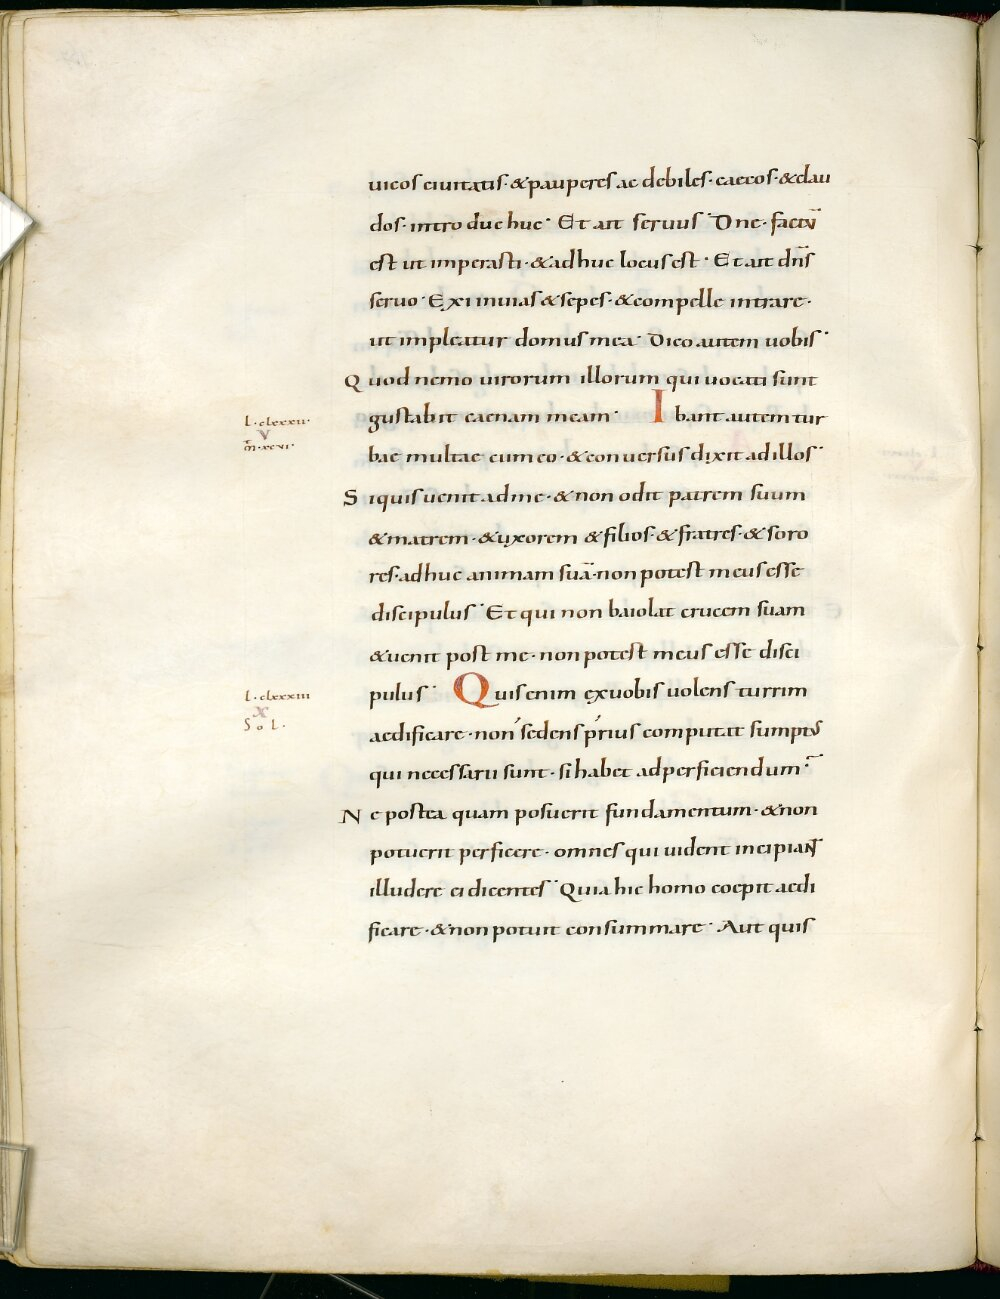 uicos ciuitatis· & pauperes ac debiles· caecos· & clau
dos· intro duc huc· Et ait seruus· Dne· factū
est ut imperasti· & adhuc locus est· Et ait dn̄s
seruo· Exi in uias & sepes· & compelle intrare·
ut impleatur domus mea· Dico autem uobis·
Quod nemo uirorum illorum qui uocati sunt
gustabit caenam meam· Ibant autem tur
L·clxxxii·
V
m̄·xcvi·
bae multae cum eo· & conuersus dixit ad illos·
Si quis uenit ad me· & non odit patrem suum
& matrem· & uxorem & filios· & fratres· & soro
res· adhuc animam suā· non potest meus esse
discipulus· Et qui non baiolat crucem suam
& uenit post me· non potest meus esse disci
pulus· Quis enim ex uobis uolens turrim
L·clxxxiii
X
SoL·
aedificare· non sedens prius computat sumptos
qui necessarii sunt· si habet ad perficiendum·
Ne postea quam posuerit fundamentum· & non
potuerit perficere· omnes qui uident incipiant
illudere ei dicentes· Quia hic homo coepit aedi
ficare· & non potuit consummare· Aut quis